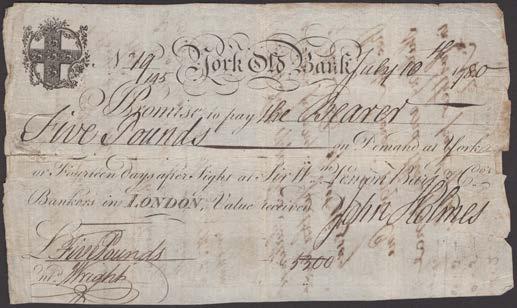 No. 19/195 York Old Bank July 10th 1780
I Promise to pay the Bearer
Five Pounds on Demand at York
or Fourteen Days after Sight at Sir Wm
Bankers in LONDON, Value received John Holmes
£ Five Pounds 5300
Entd. Wright